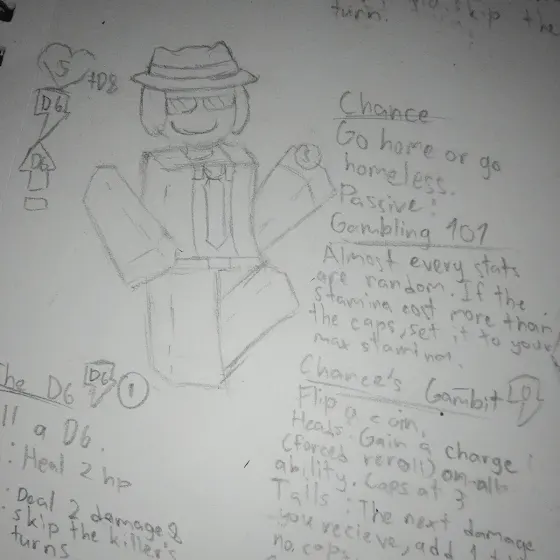 turn.
skip the
5
+D8
D6
D6
3
Chance
Go home or go
homeless.
Passive:
Gambling 101
Almost every stats
are random. If the
stamina cost more than
the caps, set it to your
max stamina.
Chance's Gambit 0
Flip a coin,
Heads: Gain a charge
(forced reroll) on all
ability. Caps at 3
Tails: The next damage
you recieve, add 1
no caps.
The D6 D6 1
ll a D6.
: Heal 2 hp
: Deal 2 damage &
skip the killer's
turns